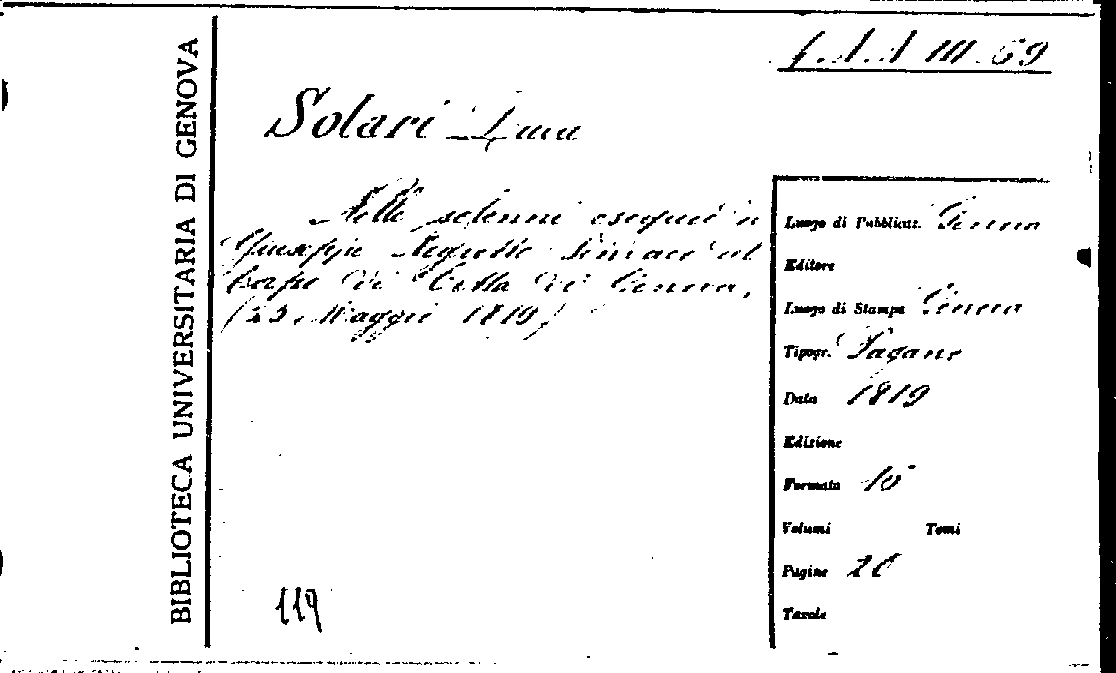 BIBLIOTECA UNIVERSITARIA DI GENOVA
III. 69
Solari Luca
Nelle solenni esequie a
Giuseppe Negrotto Sindaco del
Corpo di Città di Genova,
(23 Maggio 1819)
Luogo di Pubblicaz. Genova
Editore
Luogo di Stampa Genova
Tipogr. Pagano
Data 1819
Edizione
Formato
Volumi Tomi
Pagine
Tavole
119